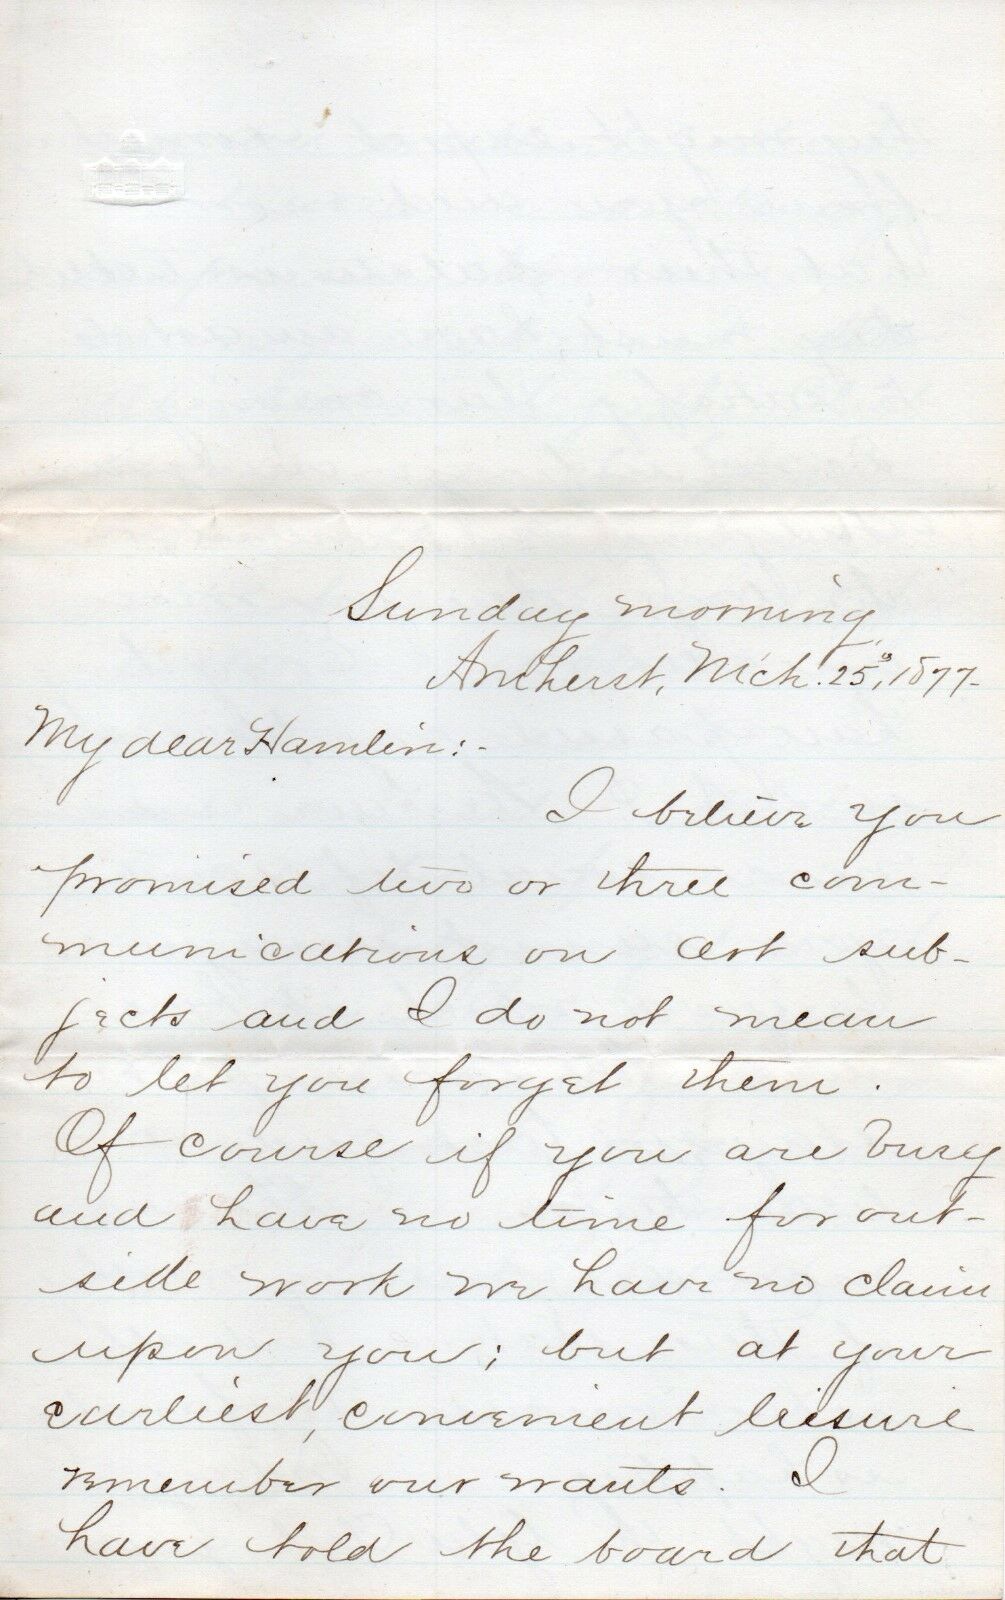 Sunday morning,
Amherst, Mch. 25, 1877.
My dear Hamlin:-
I believe you
promised two or three com-
munications on art sub-
jects and I do not mean
to let you forget them.
Of course if you are busy
and have no time for out-
side work we have no claim
upon you; but at your
earliest, convenient leisure
remember our wants. I
have told the board that